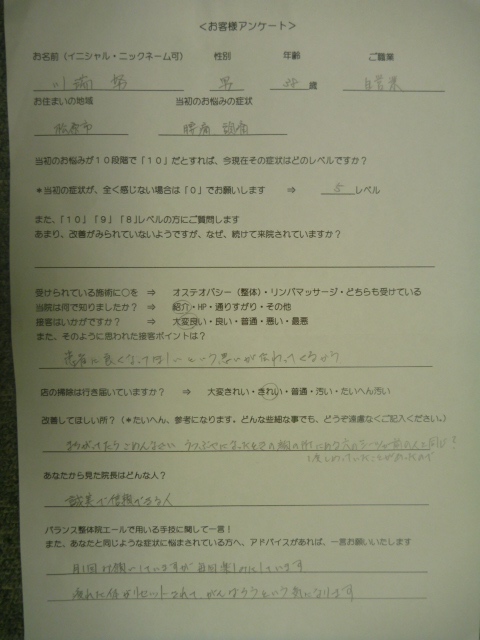 <お客様アンケート>
お名前(イニシャル・ニックネーム可) 性別 年齢 ご職業
川 男 歳 自営業
お住まいの地域 当初のお悩みの症状
松原市 腰痛 頭痛
当初のお悩みが10段階で「10」だとすれば、今現在その症状はどのレベルですか?
*当初の症状が、全く感じない場合は「0」でお願いします ⇒ 5 レベル
また、「10」「9」「8」レベルの方にご質問します
あまり、改善がみられていないようですが、なぜ、続けて来院されていますか?
受けられている施術に○を ⇒ オステオパシー(整体)・リンパマッサージ・どちらも受けている
当院は何で知りましたか? ⇒ 紹介・HP・通りすがり・その他
接客はいかがですか? ⇒ 大変良い・良い・普通・悪い・最悪
また、そのように思われた接客ポイントは?
患者に良くなってほしいという思いが伝わってくるから
店の掃除は行き届いていますか? ⇒ 大変きれい・きれい・普通・汚い・たいへん汚い
改善してほしい所?(*たいへん、参考になります。どんな些細な事でも、どうぞ遠慮なくご記入ください。)
まちがってたらごめんなさい うつぶせになったときの顔の所にある穴のシーツが前の人と同じ?
あなたから見た院長はどんな人?
誠実で信頼できる人
バランス整体院エールで用いる手技に関して一言!
また、あなたと同じような症状に悩まされている方へ、アドバイスがあれば、一言お願いいたします
月1回お願いしていますが毎回楽しみにしています
疲れた体がリセットされて、がんばろうという気になります